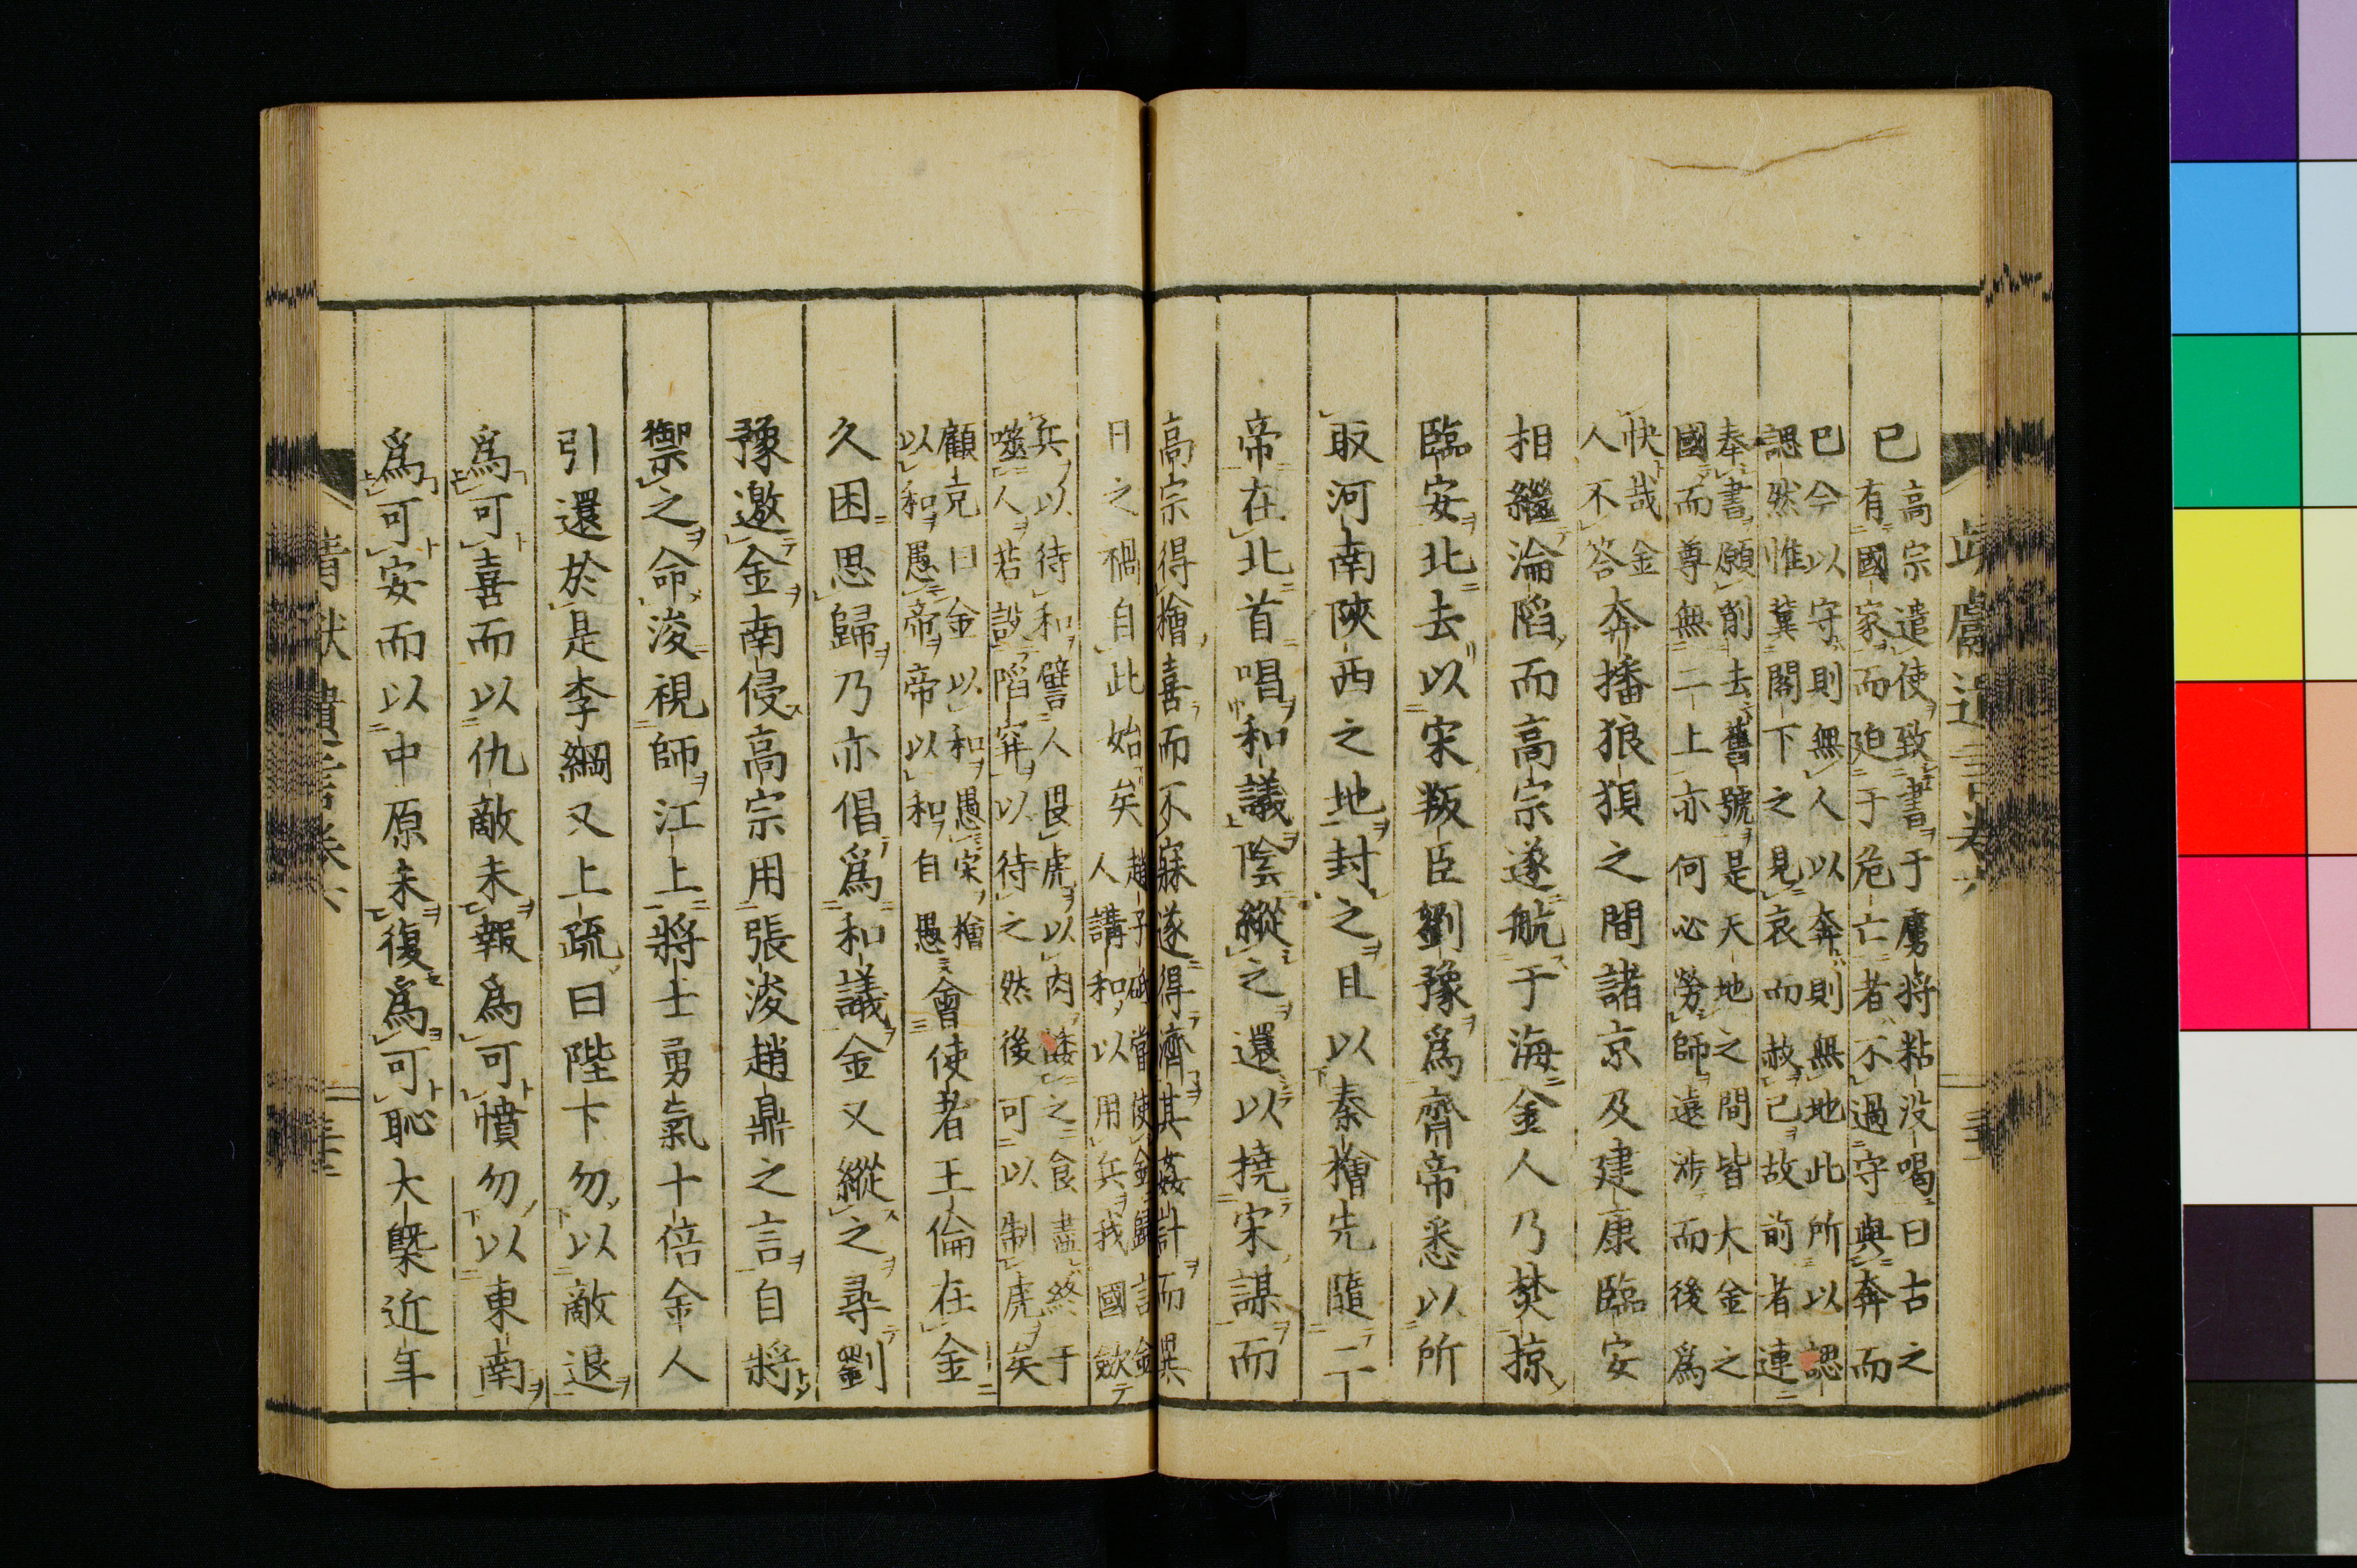 已
高宗遣使致書于虜将粘没喝曰古之
有國家而迫于危亡者不過守與奔而
已今以守則無人以奔則無地此所以諰
諰然惟冀閣下之見哀而赦已故前者連
奉書願削去舊號是天地之間皆大金之
國而尊無二上亦何必勞師遠涉而後爲
快哉金
人不答
奔播狼狽之間諸京及建康臨安
相繼淪陷而高宗遂航于海金人乃焚掠
臨安北去以宋叛臣劉豫爲齊帝悉以所
取河南陝西之地封之且以秦檜先隨二
帝在北首唱和議陰縱之還以撓宋謀而
高宗得檜喜而不寐遂得濟其姦計而異
日之禍自此始矣
趙子砥嘗使金歸言金
人講和以用兵我國斂
兵以待和譬人畏虎以肉餧之食盡終于
噬人若設陷穽以待之然後可以制虎矣
顧克曰金以和愚宋檜
以和愚帝帝以和自愚
會使者王倫在金
久困思歸乃亦倡爲和議金又縱之尋劉
豫邀金南侵高宗用張浚趙鼎之言自將
禦之命浚視師江上將士勇氣十倍金人
引還於是李綱又上疏曰陛下勿以敵退
爲可喜而以仇敵未報爲可憤勿以東南
爲可安而以中原未復爲可恥大槩近年
靖獻遺言卷六